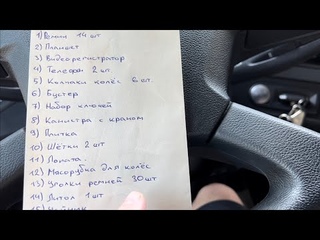 1) Ремни 14 шт
2) Планшет
3) Видеорегистратор
4) Телефон 2 шт
5) Колпаки колёс 6 шт.
6) Бустер
7) Набор ключей
8) Канистра с краном
9) Плитка
10) Щётки 2 шт
11) Лопата.
12) Мясорубка для колёс
13) Уголки ремней 30 шт
14) Литол 1 шт
15) Чайник